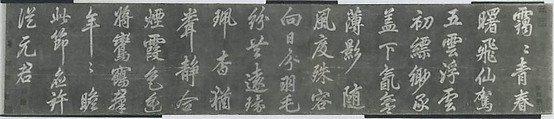 靄〻青春
曙飛仙駕
五雲浮雲
初縹緲承
蓋下氤氳
薄影隨
風度殊容
向日分羽毛
紛共遠環
珮杳猶
聞靜合
煙霞色遙
將鸞鶴群
年〻瞻
此節應許
從元君